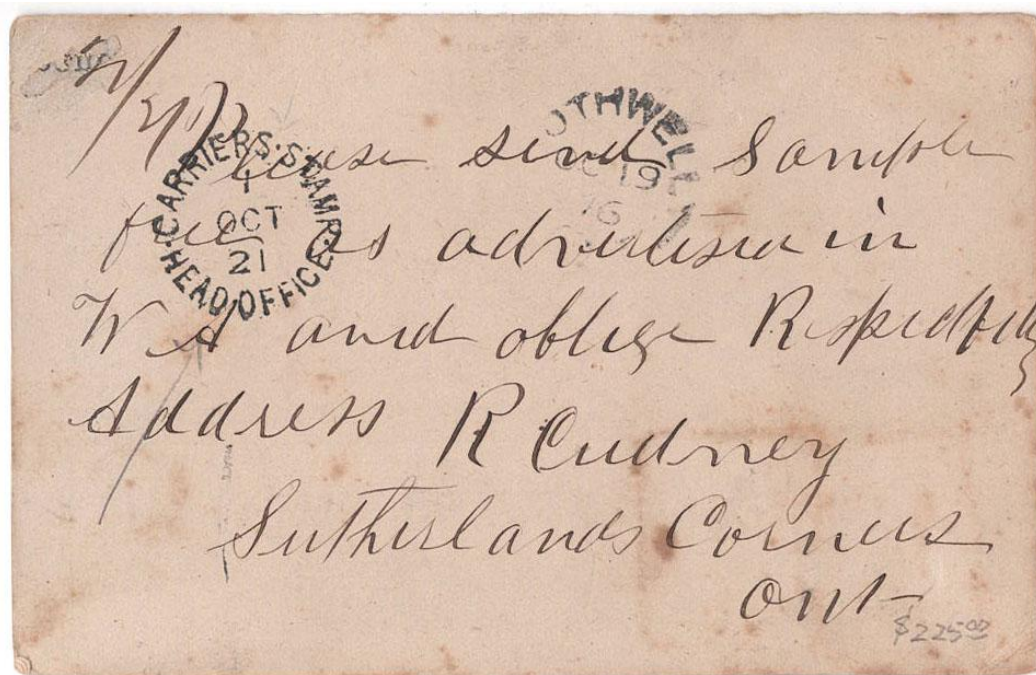 Please send Sample
free as advertised in
W A and oblige Respectfully
Address R Cudney
Sutherlands Corners
Ont
CARRIERS·STAMP·
1
OCT
21
HEAD OFFICE
OTHWELL
OC 19
76
$225.00